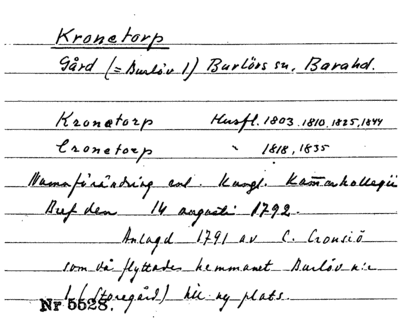 Kronetorp
Gård (= Burlöv 1) Burlövs sn, Barahd.
Kronetorp Husfl. 1803, 1810, 1825, 1844
Cronetorp " 1818, 1835
Namnförändring enl. Kungl. Kam̅arkollegii
Bref den 14 augusti 1792.
Anlagd 1791 av C. Cronsiö
som då flyttades hemmanet Burlöv n:r
1 (Storegård) till ny plats.
Nr 5528.